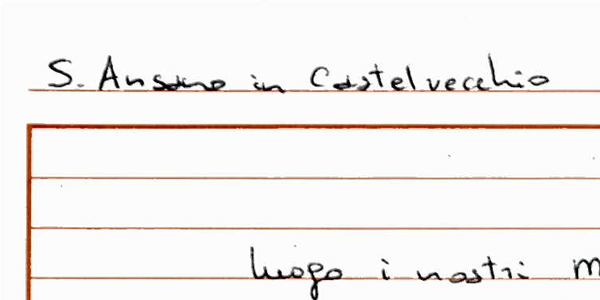 S. Ansano in Castelvecchio
luogo i nostri